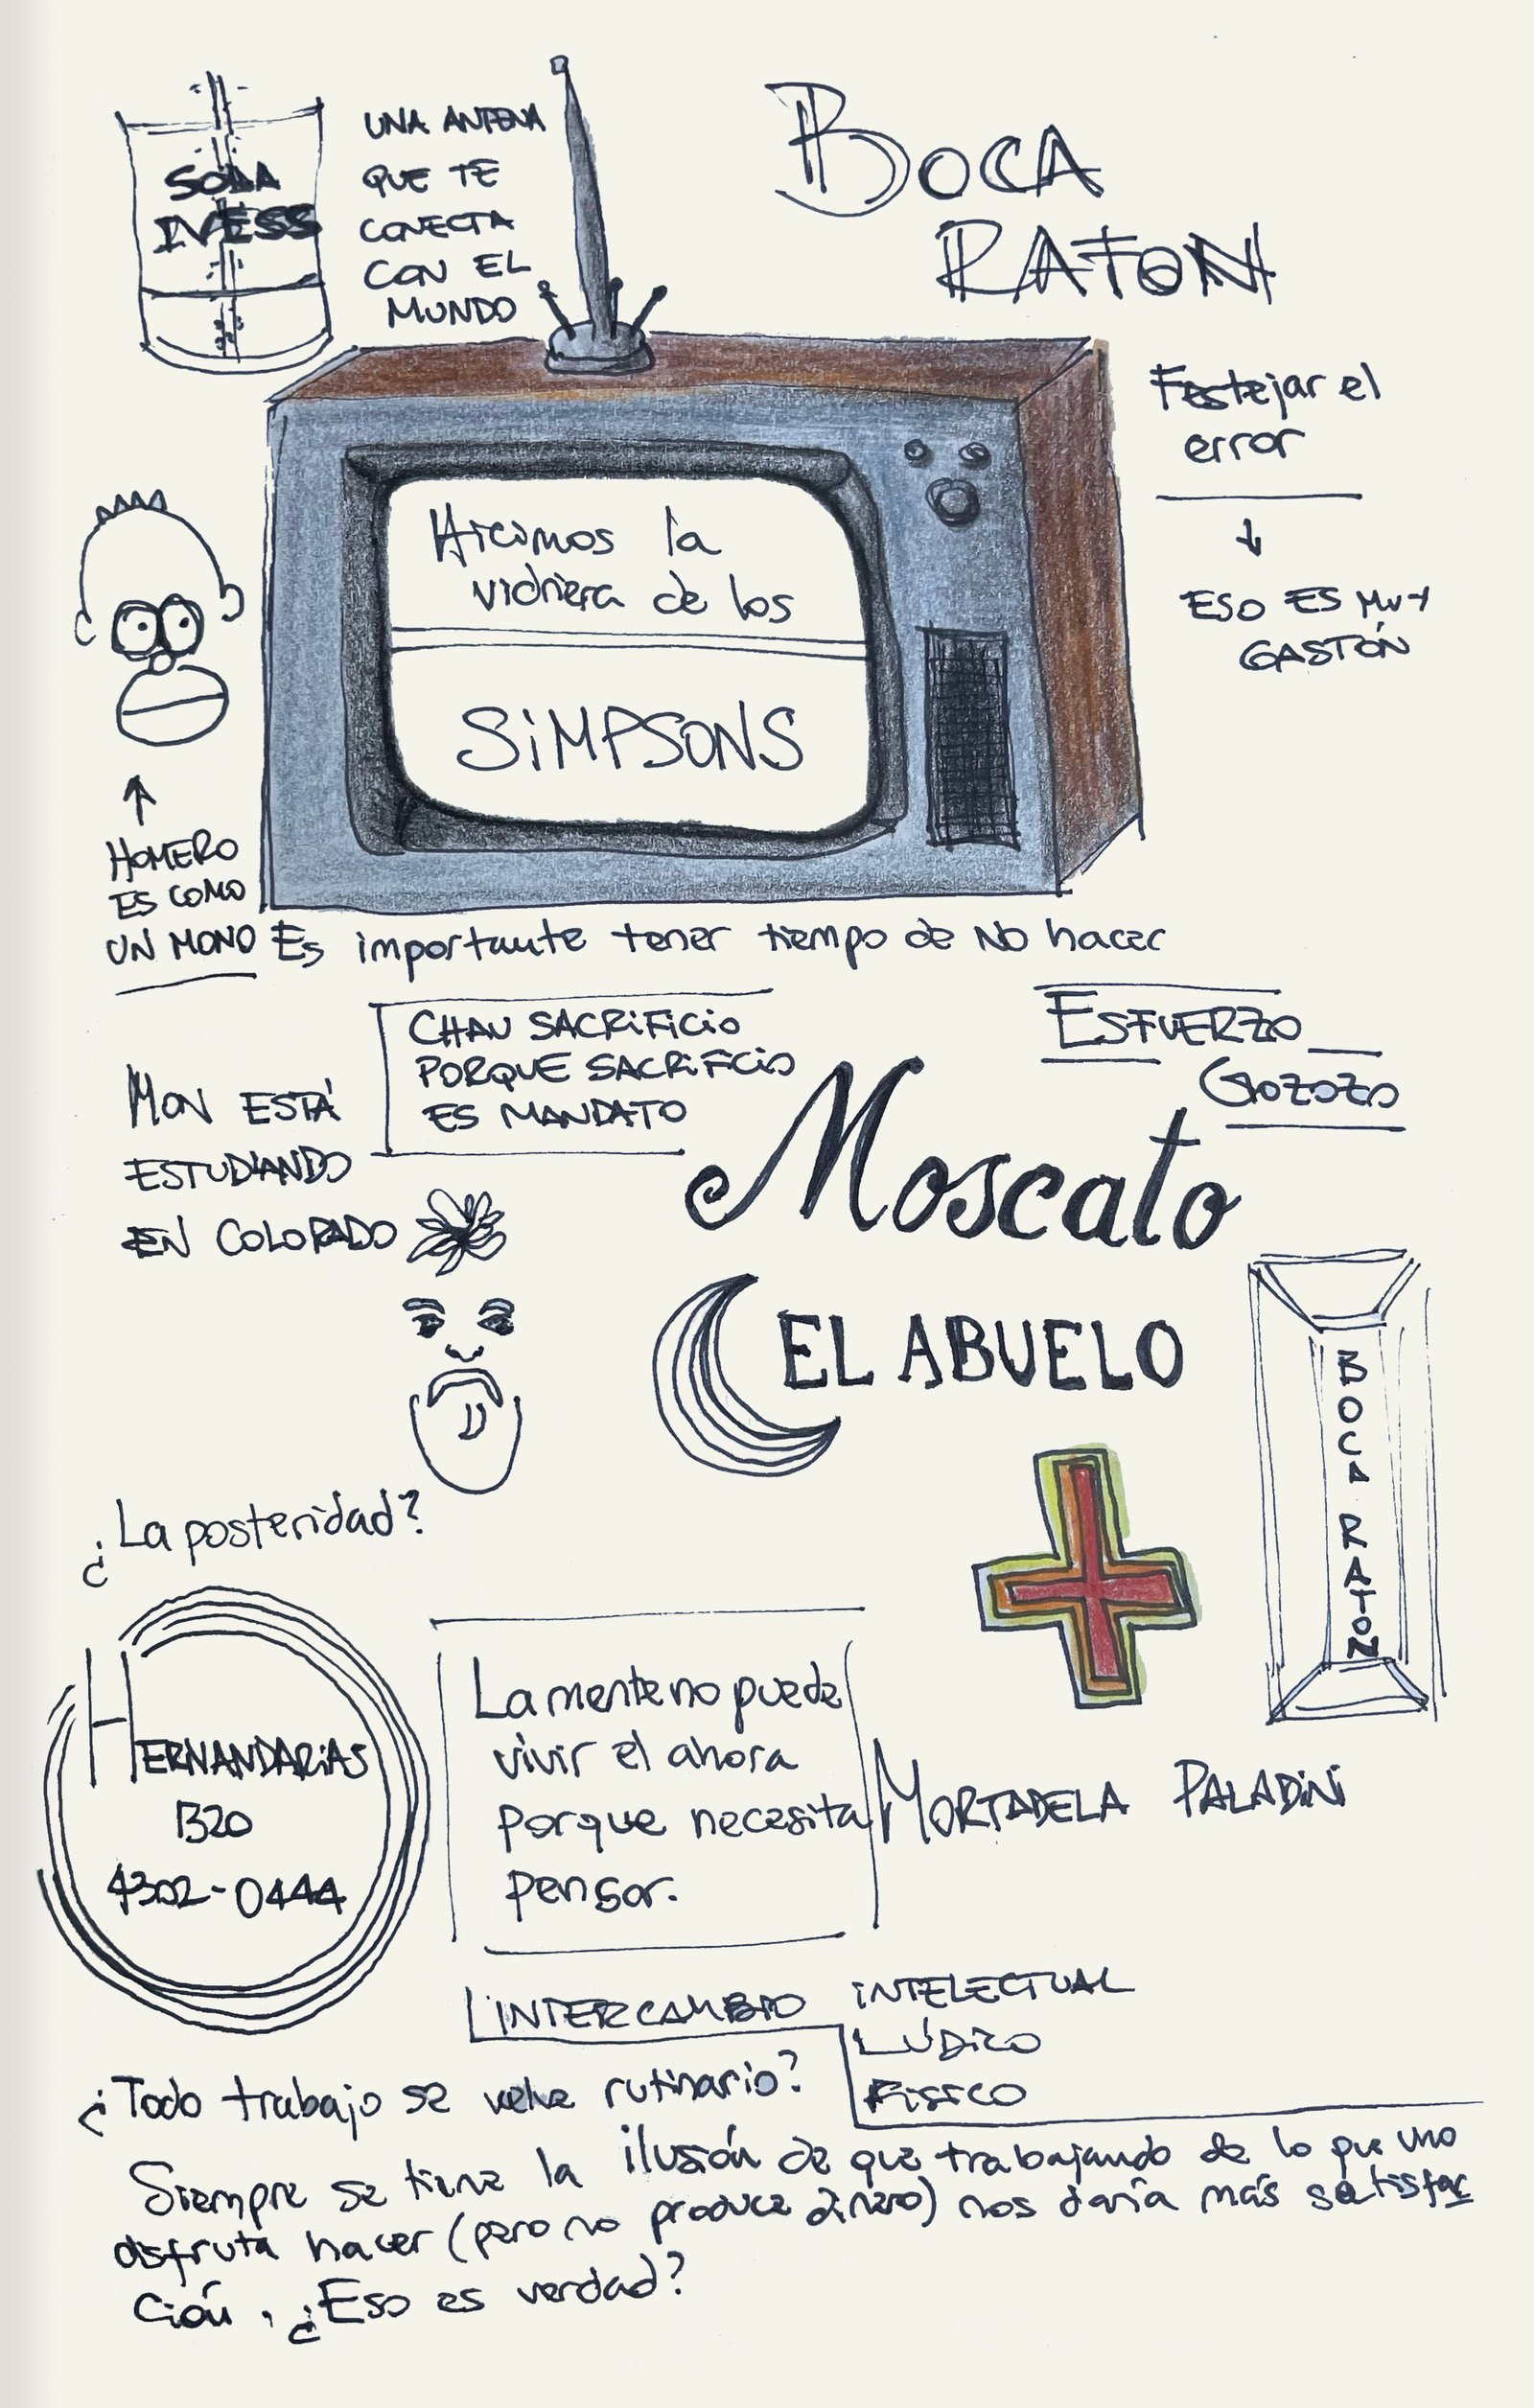 SODA
IVESS
UNA ANTENA
QUE TE
CONECTA
CON EL
MUNDO
BOCA
RATON
Festejar el
error
ESO ES MUY
GASTÓN
Hicimos la
vidriera de los
SiMPSONS
HOMERO
ES COMO
UN MONO
Es importante tener tiempo de NO hacer
CHAU SACRiFiCiO
PORQUE SACRiFiCiO
ES MANDATO
ESFUERZO
GOZOZO
MON ESTÁ
ESTUDIANDO
EN COLORADO
Moscato
EL ABUELO
BOCA RATON
¿La posteridad?
HERNANDARiAS
1320
4302-0444
La mente no puede
vivir el ahora
porque necesita
pensar.
MORTADELA PALADiNi
L'iNTERCAMBIO iNTELECTUAL
LÚDiCO
FíSICO
¿Todo trabajo se vuelve rutinario?
Siempre se tiene la ilusión de que trabajando de lo que uno
disfruta hacer (pero no produce dinero) nos daría más satisfac
ción. ¿Eso es verdad?